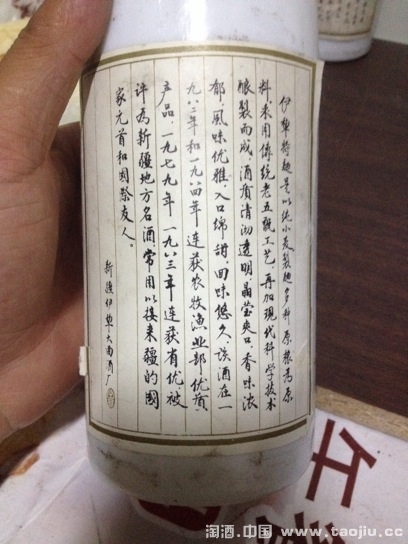 伊犁特麯是以纯小麦製麯多种原粮为原
料,采用傳统老五甑工艺,再加现代科学技术
酿製而成,酒质清沏透明晶莹爽口,香味浓
郁,风味优雅,入口绵甜,回味悠久,该酒在一
九八二年和一九八四年连获农牧渔业部优质
产品,一九七九年一九八三年连获省优被
评为新疆地方名酒常用以接来疆的國
家元首和国际友人。
新疆伊犁大曲酒厂
淘酒.中国 www.taojiu.cc